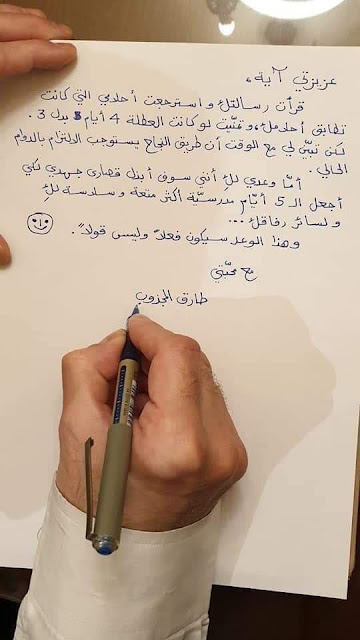 عزيزتي آية،
قرأت رسالتكِ و استرجعت أحلامي التي كانت
تطابق أحلامكِ، و تمنّيت لو كانت العطلة 4 أيام بدل 3.
لكن تبيّن لي مع الوقت أن طريق النجاح يستوجب الالتزام بالدوام
الحالي.
أمّا وعدي لكِ أنني سوف أبذل قصارى جهدي لكي
أجعل الـ 5 أيّام مدرسيّة أكثر متعة و سلاسة لكِ
و لسائر رفاقكِ ...
و هذا الوعد سيكون فعلاً وليس قولاً.
مع محبّتي
طارق المجذوب